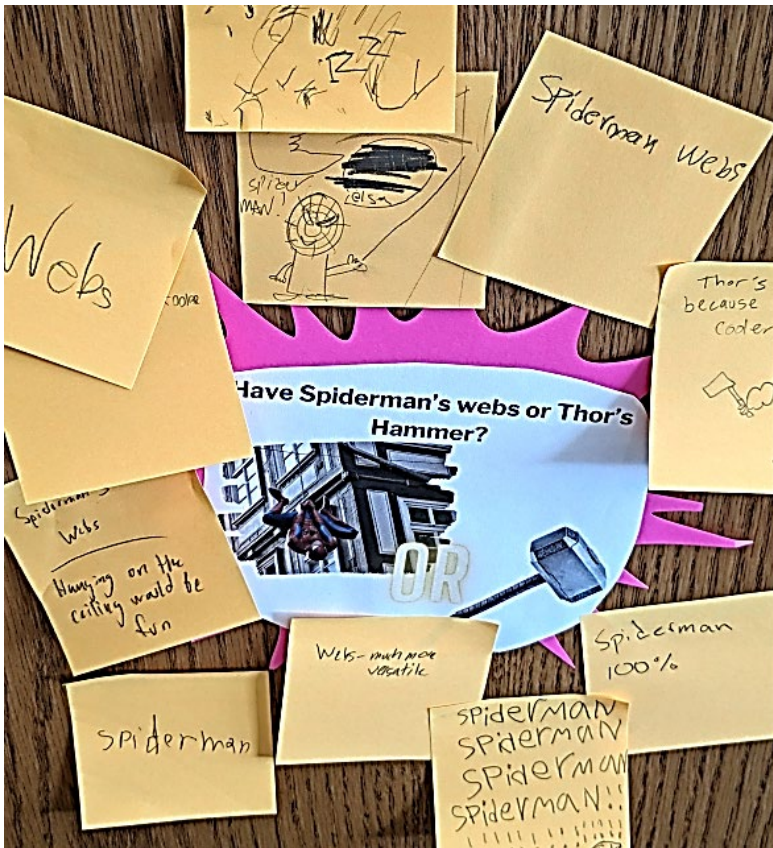 SPIDER
MAN!
else
Spiderman Webs
Webs
Thor's
because
cooler
Have Spiderman's webs or Thor's
Hammer?
OR
Webs
Hanging on the
ceiling would be
fun
Webs - much more
versatile
Spiderman
100%
spiderman
SPIDERMAN
SPIDERMAN
SPIDERMAN
SPIDERMAN!!